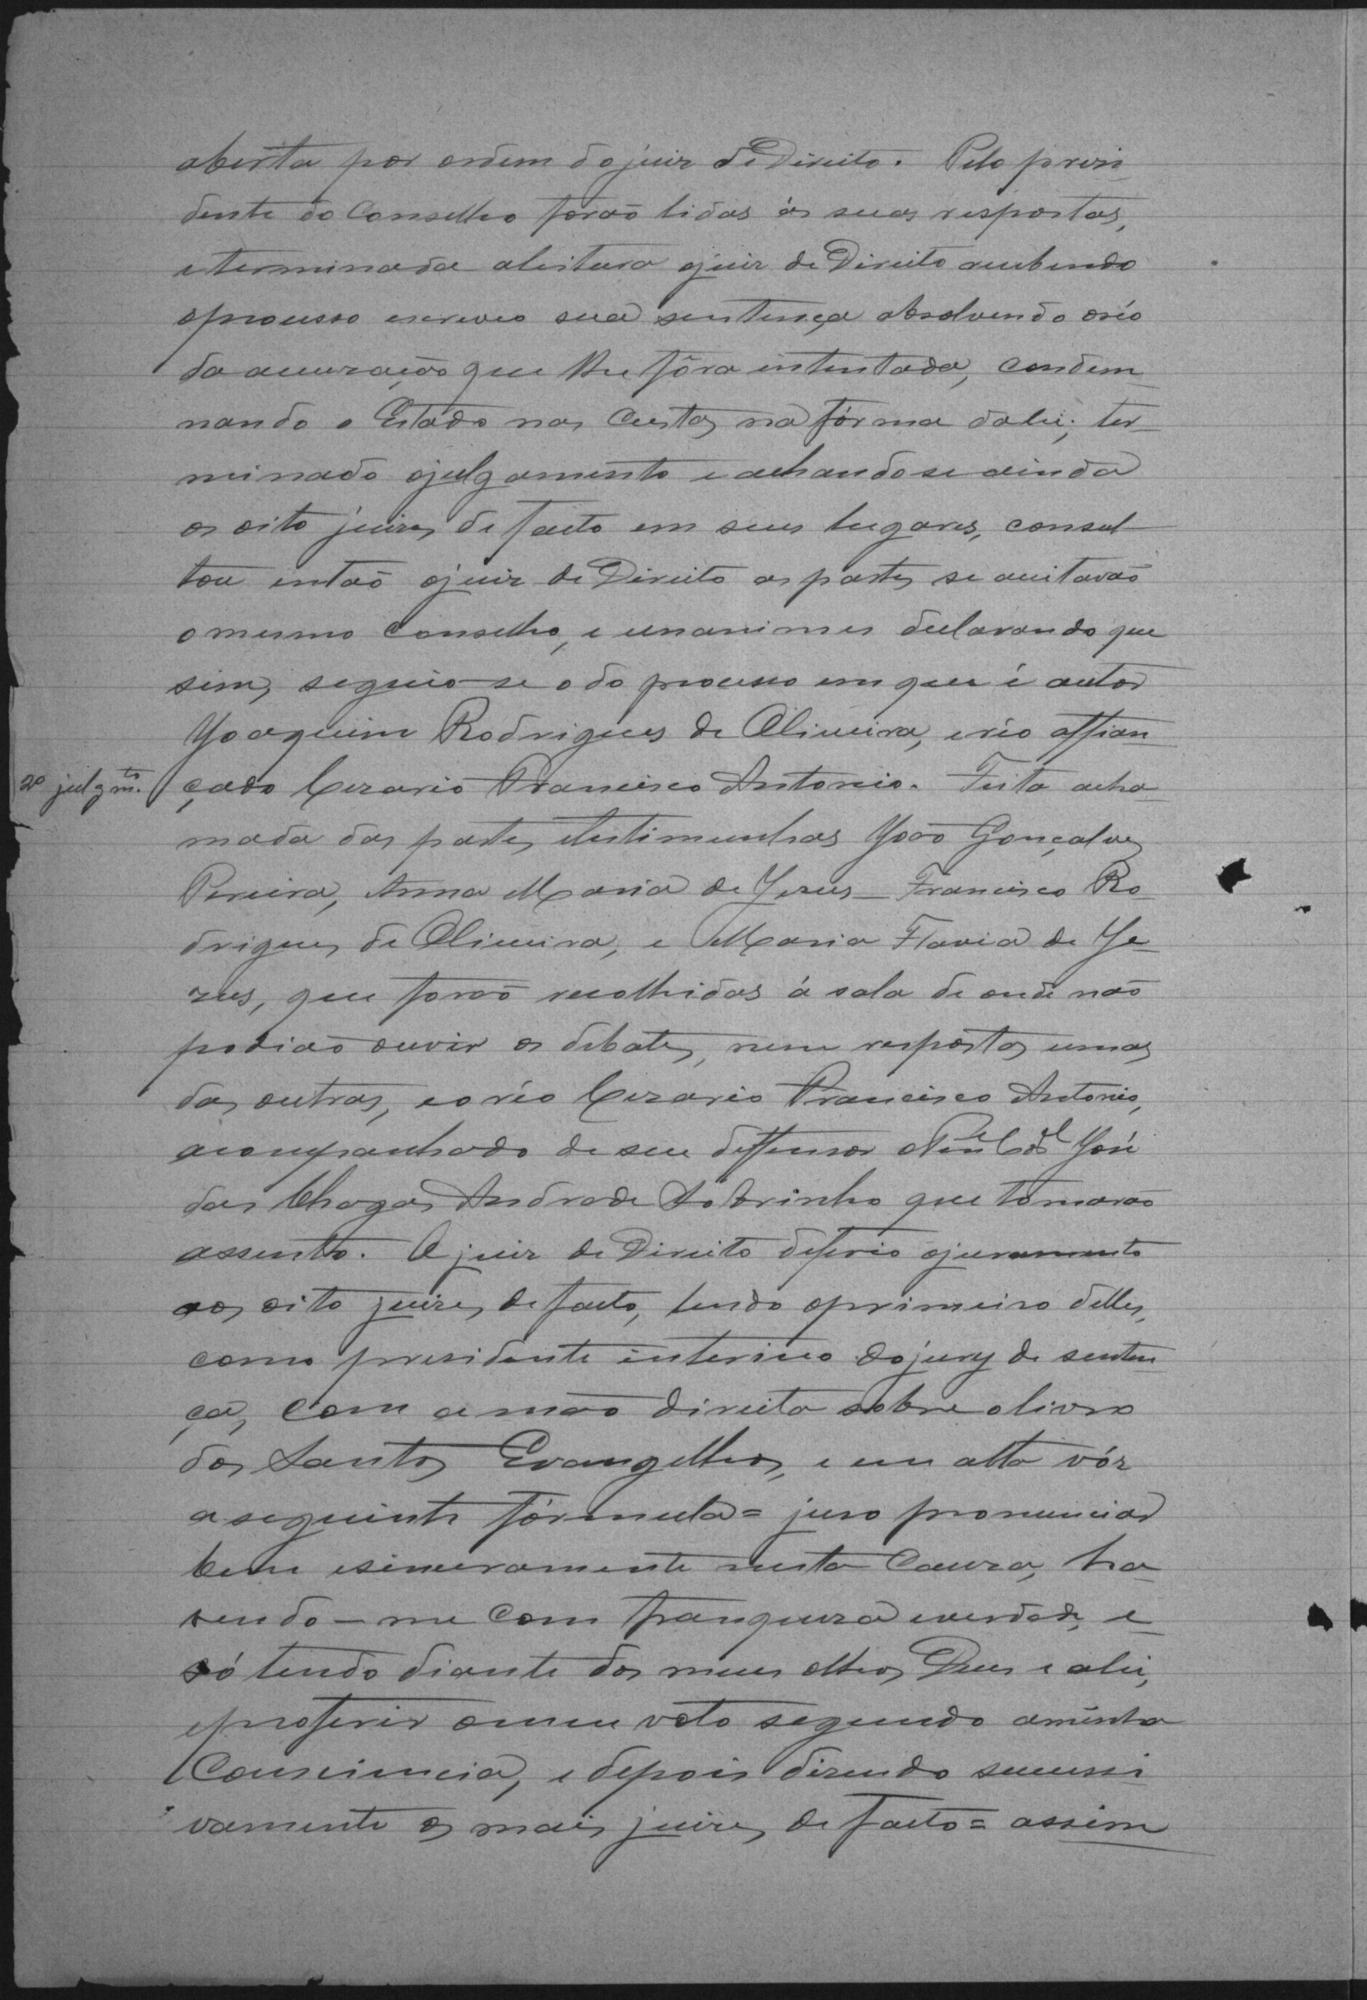 aberta por ordem do juiz de Direito. Pelo presi
dente do Conselho forão lidas ás suas respostas,
e terminada aleitura ojuiz de Direito recebendo
oprocesso escreveo sua sentença absolvendo oréo
da accusação que lhe fôra intentada, condem
nando o Estado nas custas na fórma dalei; ter
minado ojulgamento e achandose ainda
os oito juizes de facto em seus lugares, consul
tou então ojuiz de Direito as partes se aceitavão
omesmo Conselho, e unanimes declarando que
sim, seguio-se o do processo em que é autor
Joaquim Rodrigues de Oliveira, e réo affian
2º julgmto. çado Cezario Francisco Antonio. Feita acha
mada das partes, etestimunhas João Gonçalves
Pereira, Anna Maria de Jezus — Francisco Ro
drigues de Oliveira, e Maria Flavia de Je
zus, que forão recolhidas á sala de onde não
podião ouvir os debates, nem respostas umas
das outras, eoréo Cezario Francisco Antonio,
acompanhado de seu deffensor José
das Chagas Andrade Sobrinho que tomarão
assento. O juiz de Direito deferio ojuramento
aos oito juizes de facto, lendo oprimeiro delles,
como presidente interino dojury de senten
ça, com amão direita sobre olivro
dos Santos Evangelhos, e em alta vóz
aseguinte fórmula = juro pronunciar
bem esinceramente nesta Causa, ha
vendo-me com franqueza everdade, e
só tendo diante dos meus olhos Deus e alei,
eproferir omeu voto segundo aminha
Consciencia, e depois dizendo successi
vamente os mais juizes de facto = assim